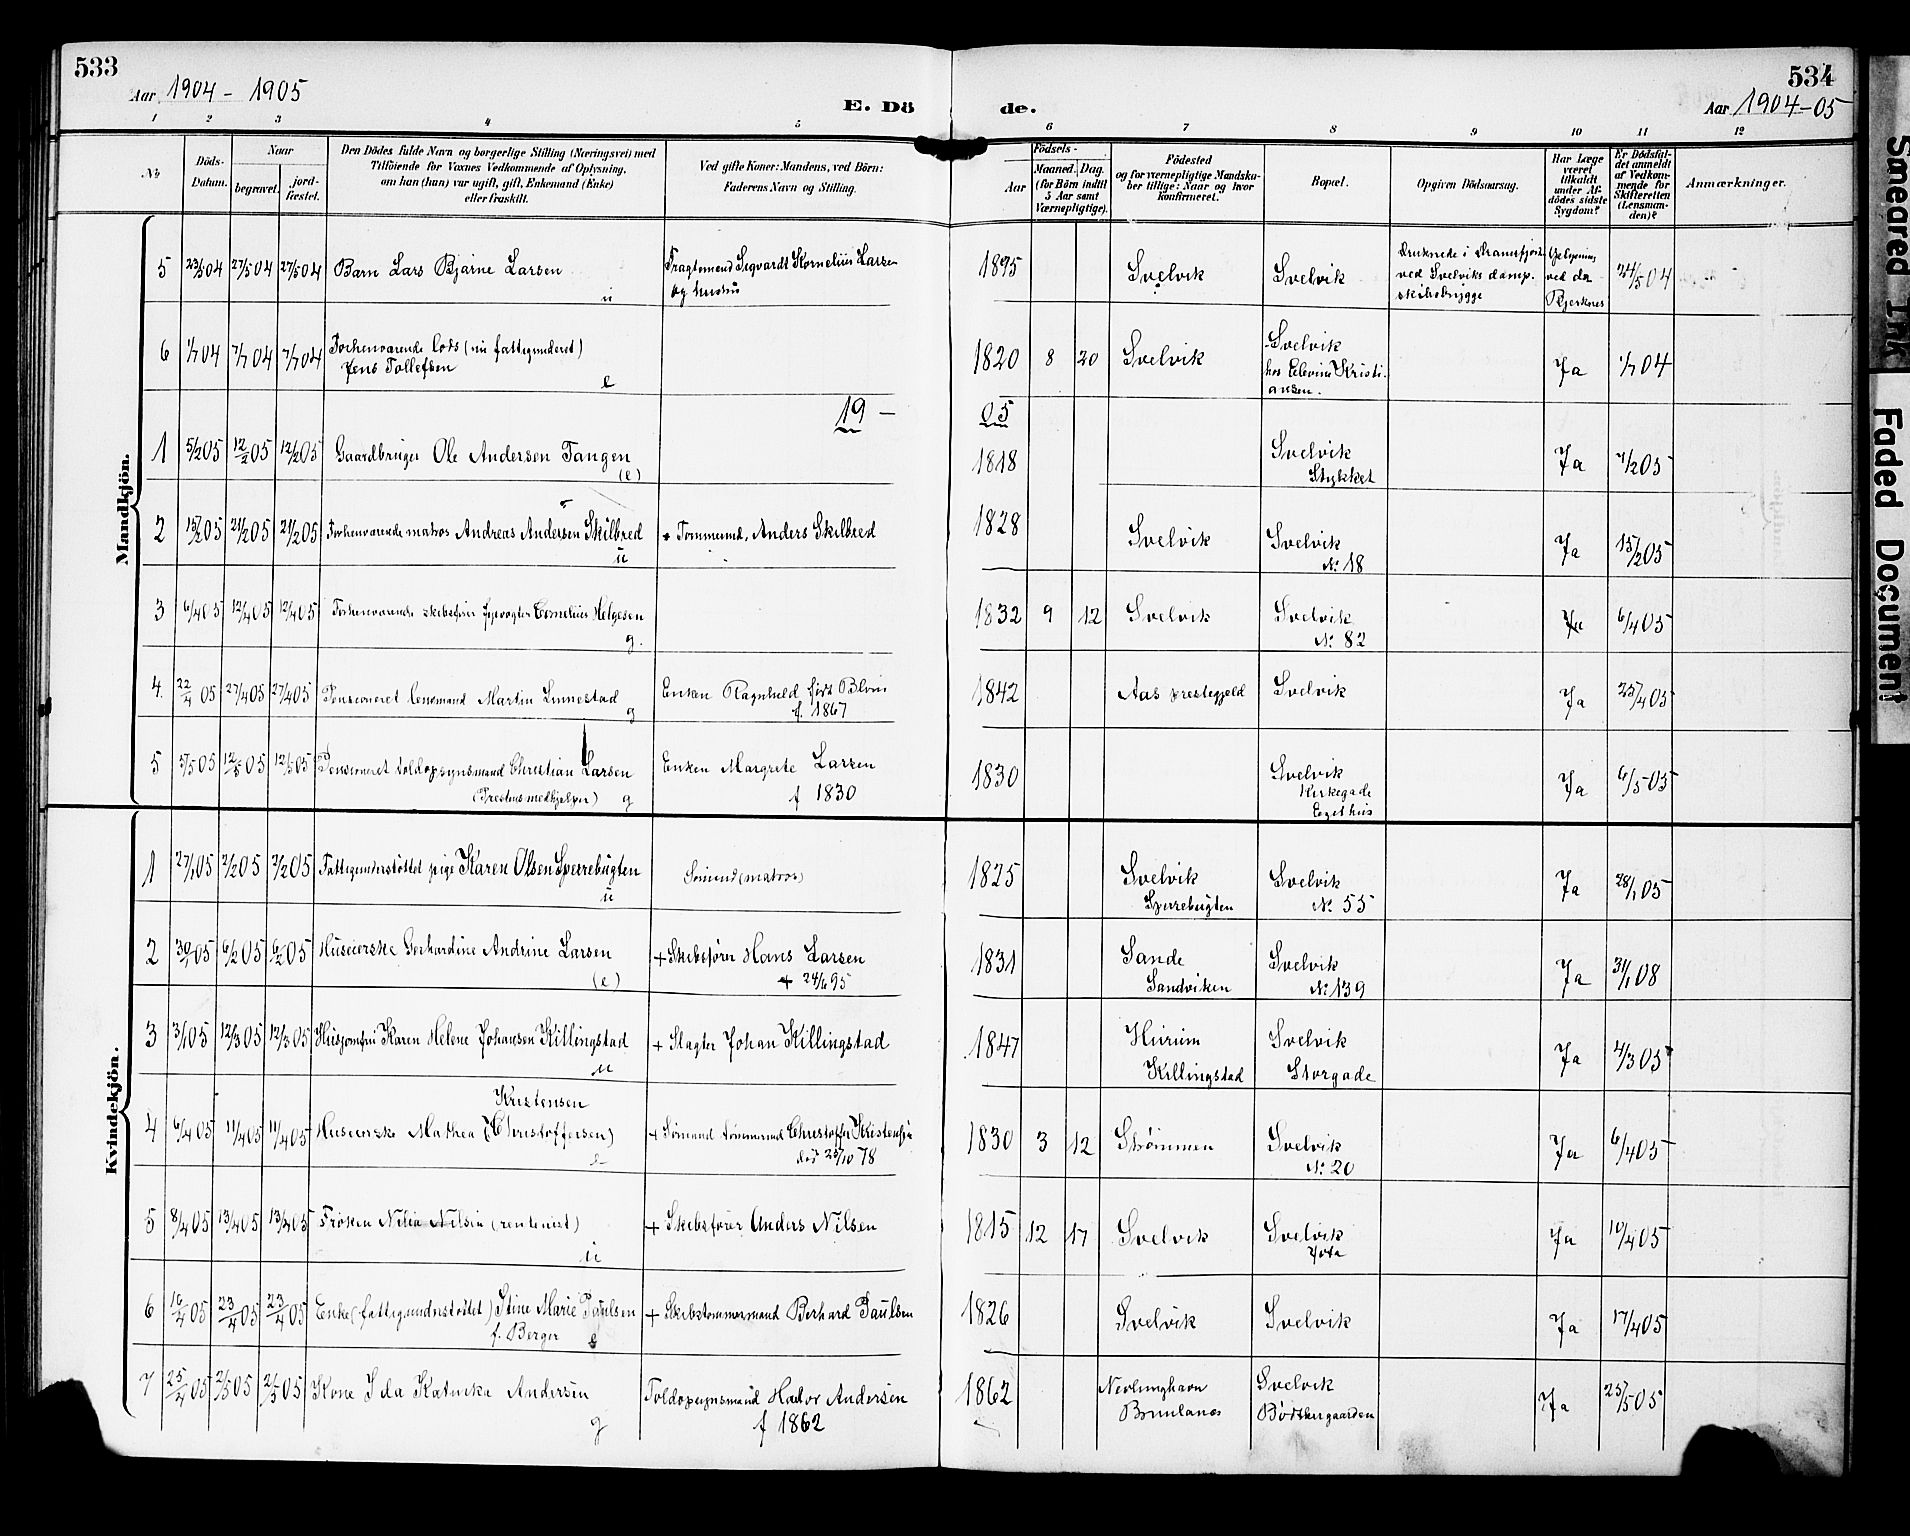 533
Aar 1904 - 1905
E. Dö
de.
534
Aar 1904-05
1 2 3 4 5 6 7 8 9 10 11 12
No
Döds-
Datum.
Naar
begravet.
jord-
fæstet.
Den Dödes fulde Navn og borgerlige Stilling (Næringsvei) med
Tilföiende for Voxnes Vedkommende af Oplysning,
om han (hun) var ugift, gift, Enkemand (Enke)
eller fraskilt.
Ved gifte Koner: Mandens, ved Börn:
Faderens Navn og Stilling.
Födsels-
Aar
Maaned. Dag.
(for Börn indtil
5 Aar samt
Værnepligtige).
Födested
og for værnepligtige Mandska-
ber tillige: Naar og hvor
konfirmeret.
Bopæl.
Opgiven Dödsaarsag.
Har Læge
været
tilkaldt
under Af-
dödes sidste
Sygdom?
Er Dödsfal-
det anmeldt
af Vedkom-
mende for
Skifteretten
(Lensman-
den)?
Anmærkninger.
Mandkjön.
5 23/5 04 27/5 04 27/5 04 Barn Lars Bjarne Larsen u Fragtemand Sigvardt Kornelius Larsen
og hustru
1895 Svelvik Svelvik Druknede i Dramsfjord
ved Svelviks damp-
skibsbrygge
ved dr
Bjerknes
24/5 04
6 1/7 04 7/7 04 7/7 04 Forhenværende lods (nu fattigunderst)
Jens Tollefsen e
1820 8 20 Svelvik Svelvik
hos Elevine Kristi-
ansen.
Ja 1/7 04
19 - 05
1 5/2 05 12/2 05 12/2 05 Gaardbruger Ole Andersen Tangen
(e)
1818 Svelvik
Stykket
Ja 7/2 05
2 15/2 05 21/2 05 21/2 05 Forhenværende matros Andreas Andersen Skilbred
u
Tømmermd, Anders Skilbred
1828 Svelvik Svelvik
No 18
Ja 15/2 05
3 6/4 05 12/4 05 12/4 05 Forhenværende skibsfører fyrvogter Cornelius Helgesen
g.
1832 9 12 Svelvik Svelvik
No 82
Ja 6/4 05
4. 22/4 05 27/4 05 27/4 05 Pensioneret lensmand Martin Linnestad
g
Enken Ragnhild født
f. 1867
1842 Aas prestegjeld Svelvik Ja 25/4 05
5 5/5 05 12/5 05 12/5 05 Pensioneret toldopsynsmand Christian Larsen
(Prestens medhjelper) g
Enken Margrete Larsen
f 1830
1830 Svelvik
Kirkegade
Eget hus
Ja 6/5 05
Kvindekjön.
1 27/1 05 2/2 05 2/2 05 Fattigunderstøttet pige Karen Olsen Sperrebugten
u
Sømand (matros)
1825 Svelvik
Sperrebugten
Svelvik
No 55
Ja 28/1 05
2 30/1 05 6/2 05 6/2 05 Huseierske Gerhardine Andrine Larsen
(e)
+ Skibsfører Hans Larsen
+ 24/6 95
1831 Sande
Sandviken
Svelvik
No 139
Ja 31/1 08
3 3/1 05 12/3 05 12/3 05 Husjomfru Karen Helene Johansen Killingstad
u
+ Slagter Johan Killingstad
1847 Hurum
Killingstad
Svelvik
Storgade
Ja 4/3 05
4 6/4 05 11/4 05 11/4 05 Huseierske Mathea (Christoffersen)
Kristensen
e
+ Sømand tømmermd Christoffer Kristensen
død 25/10 78
1830 3 12 Strømmen Svelvik
No 20
Ja 6/4 05
5 8/4 05 13/4 05 13/4 05 Frøken Nilia Nilsen (rentenist)
u
+ Skibsfører Anders Nilsen
1815 12 17 Svelvik Svelvik
Ja 10/4 05
6 16/4 05 23/4 05 23/4 05 Enke (fattigunderstøttet) Stine Marie Paulsen
f. Berger e
+ Skibstømmermand Berhard Paulsen
1826 Svelvik Svelvik Ja 17/4 05
7 25/4 05 2/5 05 2/5 05 Kone Ida Katinka Andersen
g
Toldopsynsmand Hador Andersen
f 1862
1862 Nevlunghavn
Brunlanes
Svelvik
Bødkergaarden
Ja 25/5 05
Smeared Ink
Faded Document